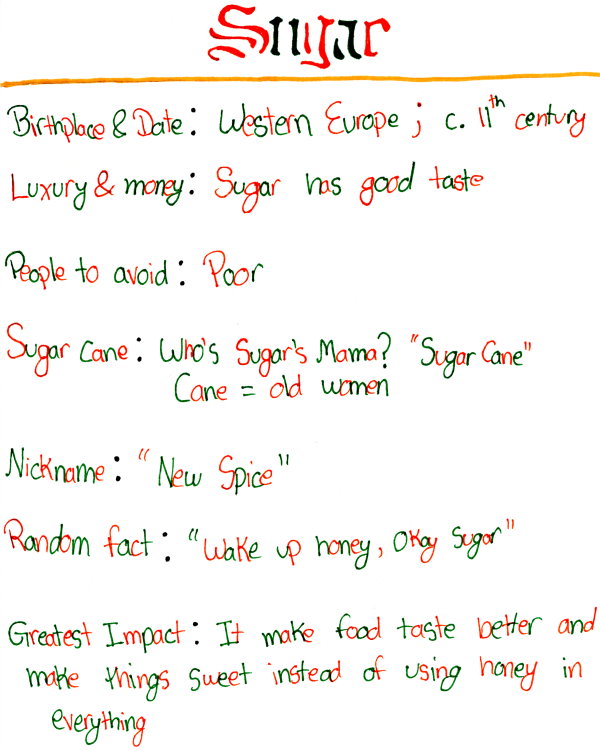 Sugar
Birthplace & Date: Western Europe; c. 11th century
Luxury & money: Sugar has good taste
People to avoid: Poor
Sugar Cane: Who's Sugar's Mama? "Sugar Cane"
Cane = old women
Nickname: "New Spice"
Random fact: "Wake up honey, Okay Sugar"
Greatest Impact: It make food taste better and
make things sweet instead of using honey in
everything